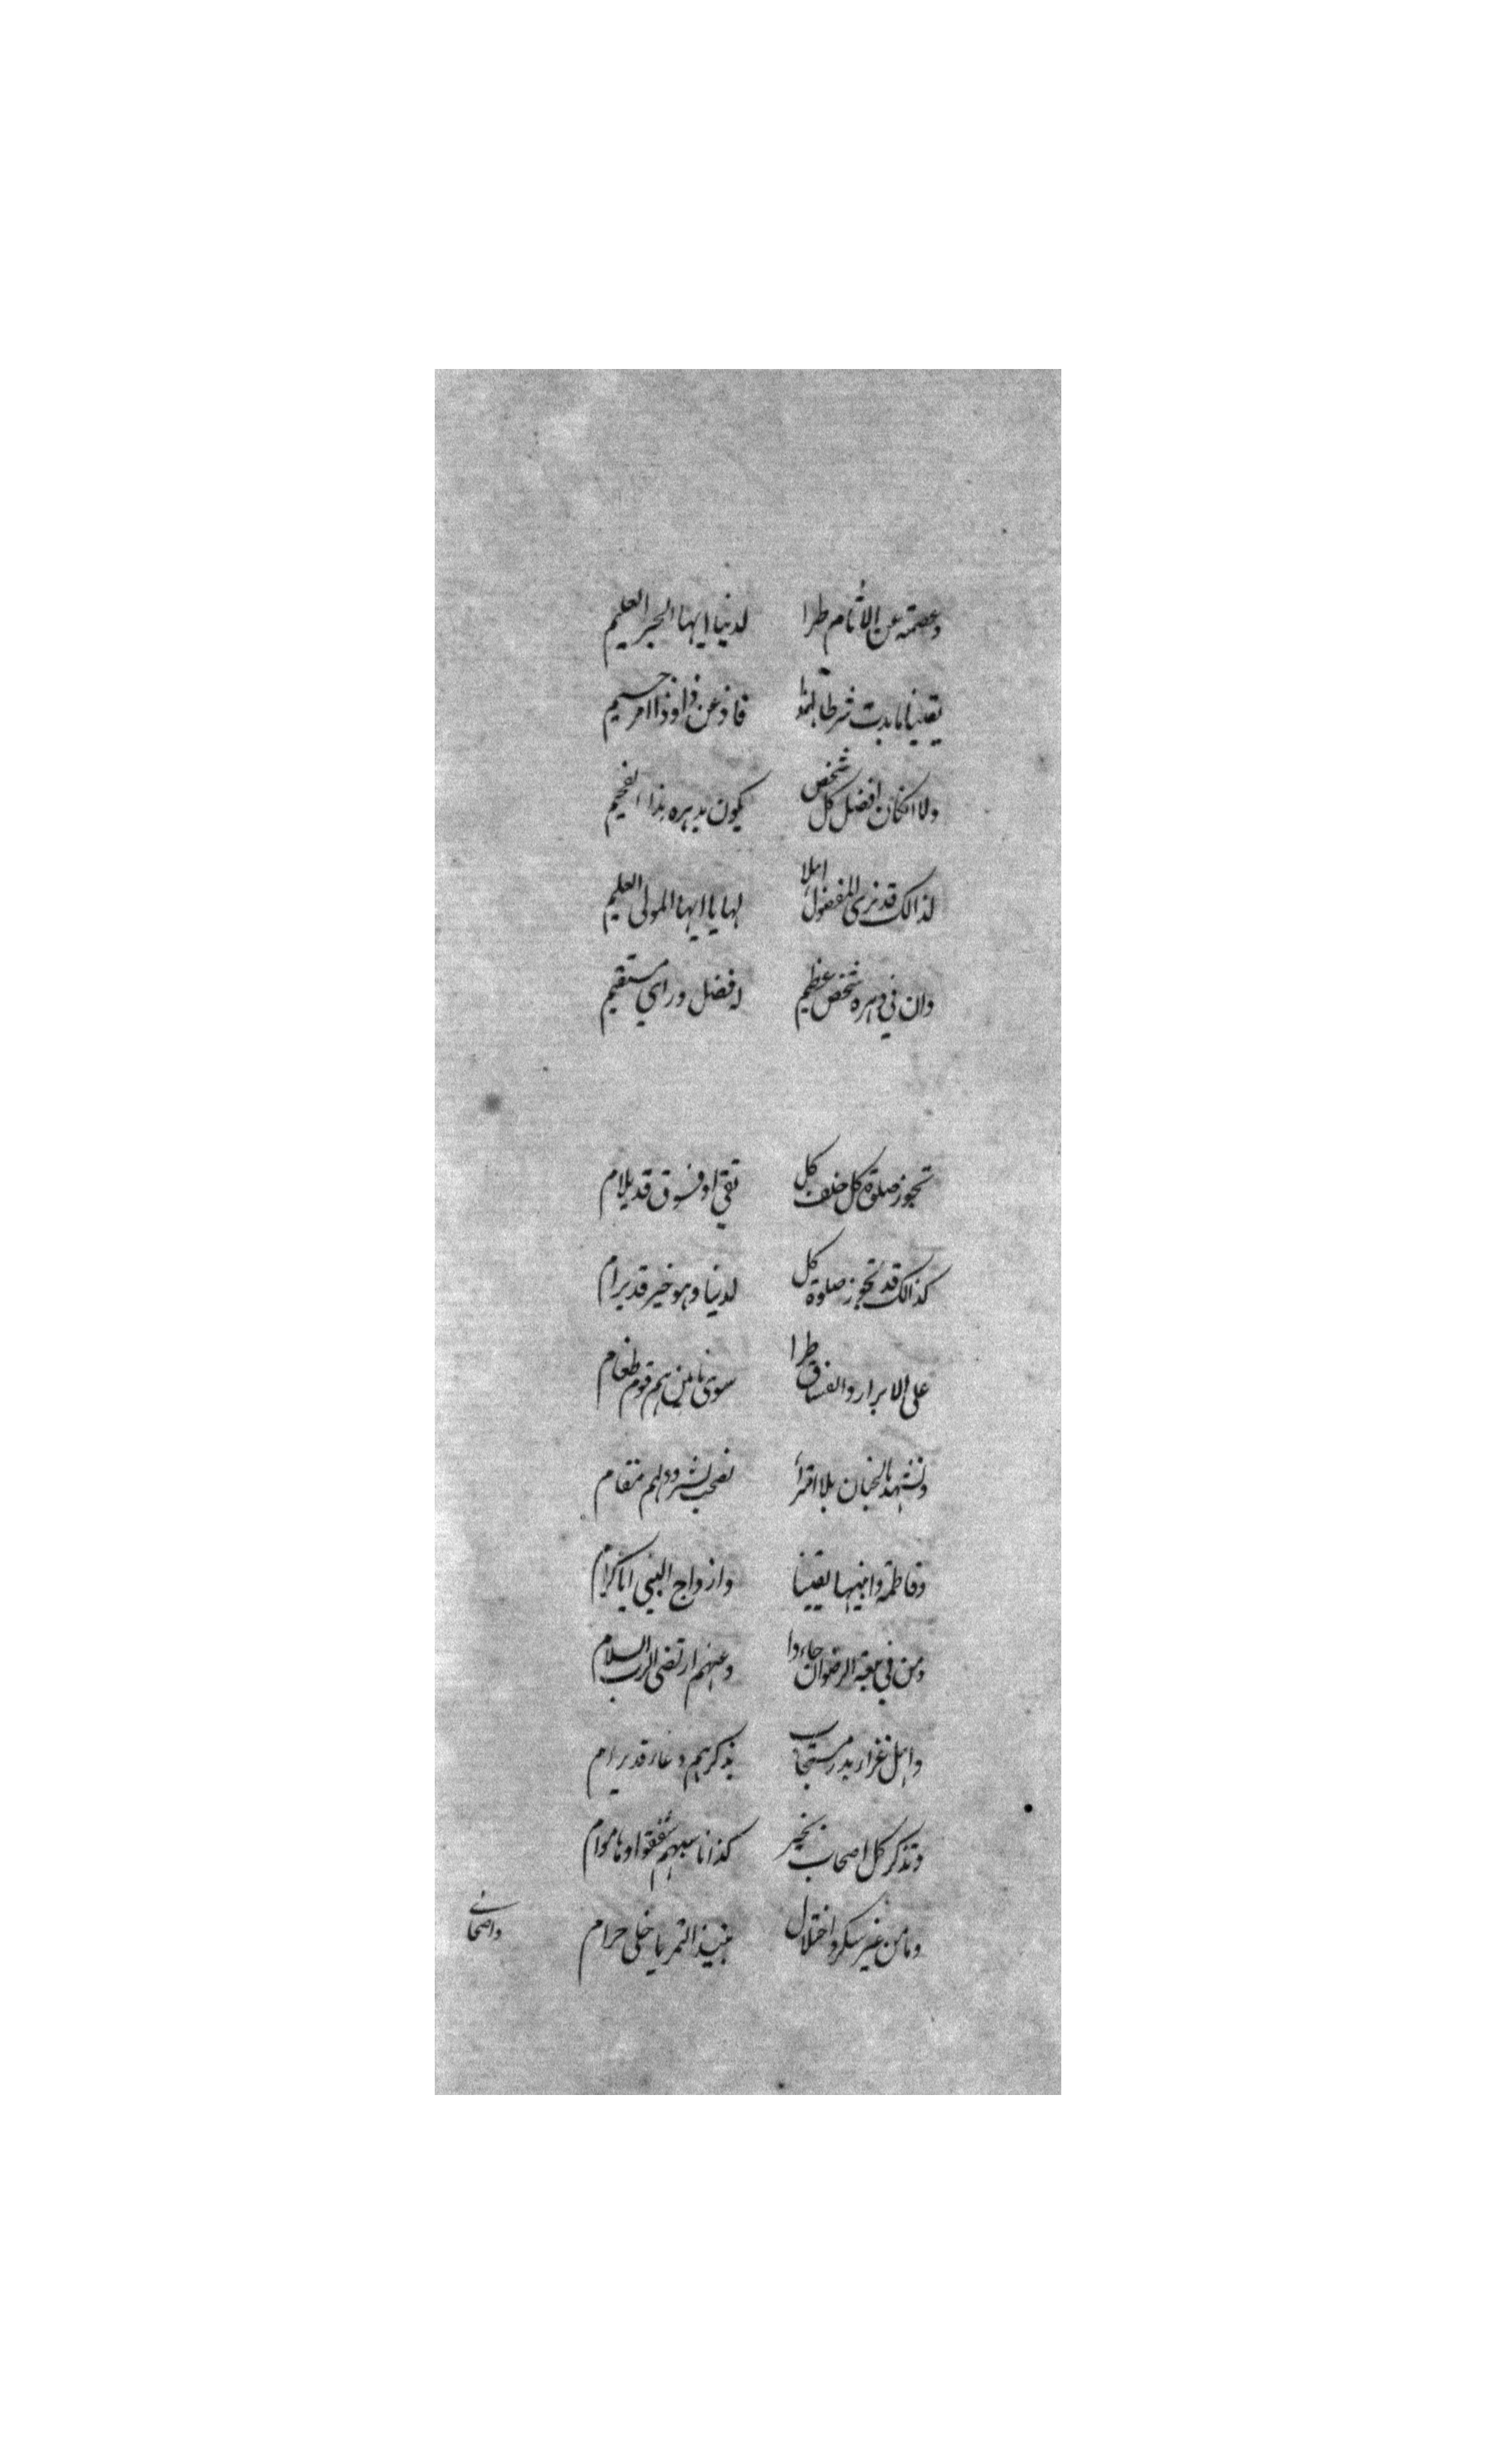 وعصمته عن الاثام طرا لدنيا ايها الحبر العليم
يقينا ما بدت شرطا فاذعن ذا وذا امر جسيم
ولا انكان افضل كل شخص يكون بدهره هذا الفخيم
لذالك قد نرى المفضول اهلا لها يا ايها المولى العليم
وان في دهره شخص عظيم له فضل وراى مستقيم
تجوز صلوة كل خلف كل تقي او فسوق قد يلام
كذالك قد تجوز صلوة كل لدنيا وهو خير قد يرام
على الابرار والفساق طرا سوى هم قوم طغام
ونشهد بالجنان بلا افتراء لصحب بشروا ولهم مقام
وفاطمة وابنيها يقينا وازواج النبي ايا كرام
ومن في بيعة الرضوان جاءوا وعنهم ارتضى الرب السلام
واهل غزاء بدر مستجاب بذكرهم دعاء قد يرام
وتذكر كل اصحاب بخير كذا ناسبهم شفقوا وهاموا
وما من غير سكر واختلال نبيذ التمر يا خلى حرام
واصحابي